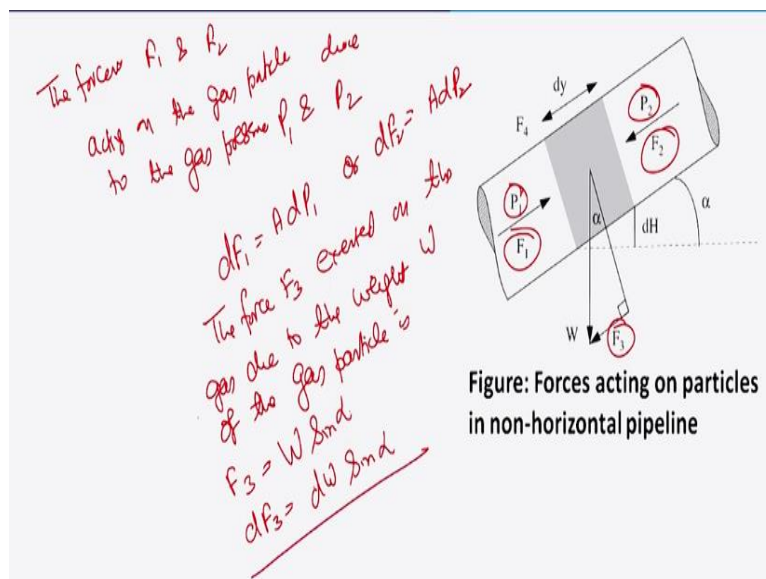 The forces F₁ & F₂
acts on the gas particle due
to the gas pressure P₁ & P₂
dF₁ = AdP₁ or dF₂ = AdP₂
The force F₃ exerted on the
gas due to the weight W
of the gas particle is
F₃ = W Sinα
dF₃ = dW Sinα
dy
F₄
P₂
F₂
P₁
F₁
α
dH
α
W
F₃
Figure: Forces acting on particles
in non-horizontal pipeline